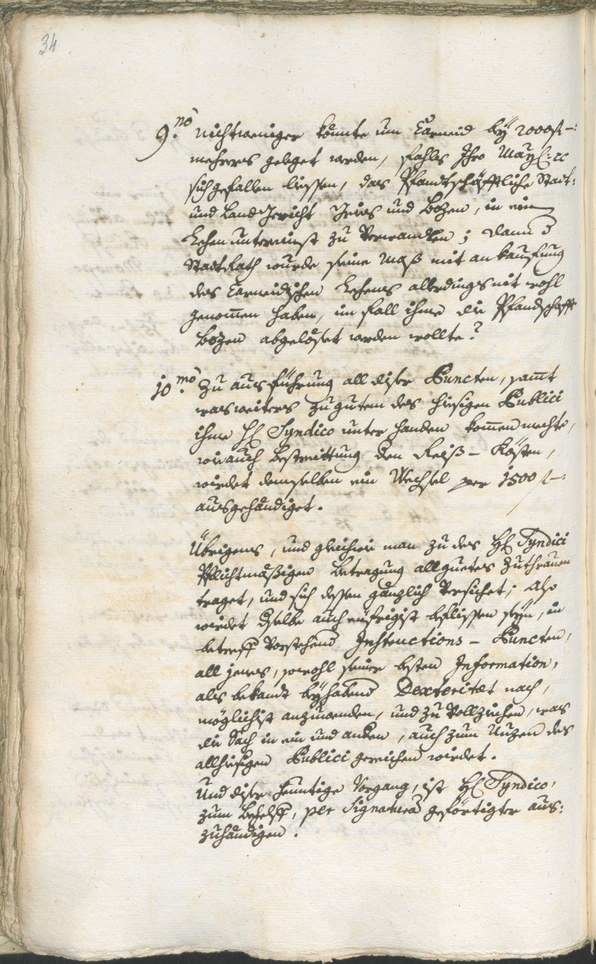 34
9.no nichtweniger könnte um Carneid bey 2000 f -:
mehrers gebget werden, fahls Ihro May: ec
sich gefallen liessen, das Pfandtschäfftliche Statt-
und Land Gericht Gries und Bozen, in ein
Lehen unterainst zu verwandlen; dann d
Stadt Rath wurde seine Maß mit ankauffung
des Carneidischen Lehens allerdings nit wohl
genommen haben, im fall ihme die Pfandschafft
Bozen abgelöset werden wollte?
10.mo Zu ausführung all diser Puncten, samt
was weiters zu gutem des hiesigen Publici
ihme H: Syndico unter handen kommen mechte,
wie auch Bestreittung der Reiß-Kösten,
wirdet demselben ein Wechsel per 1500 f -:
ausgehändiget.
Übrigens, und gleichwie man zu des H: Syndici
Pflichtmäßigen betragung all guetes Zuthrauen
traget, und sich dessen gänzlich versichet; Also
wirdet dselbe auch eyfrigist beflissen seyn, in
betreff Vorstehend Instructions-Puncten,
all jenes, sowohl seiner besten Information,
als bekandt beyhabend Dexteritæt nach,
möglichist anzuwenden, und zu Vollziechen, was
die Sach in ein und andern, auch zum Nuzen des
allhiesigen Publici gereichen wirdet.
Und diser heuntige Vorgang, ist H: Syndico,
zum Behelff, per Signatura geförtigter aus-
zuhändigen.